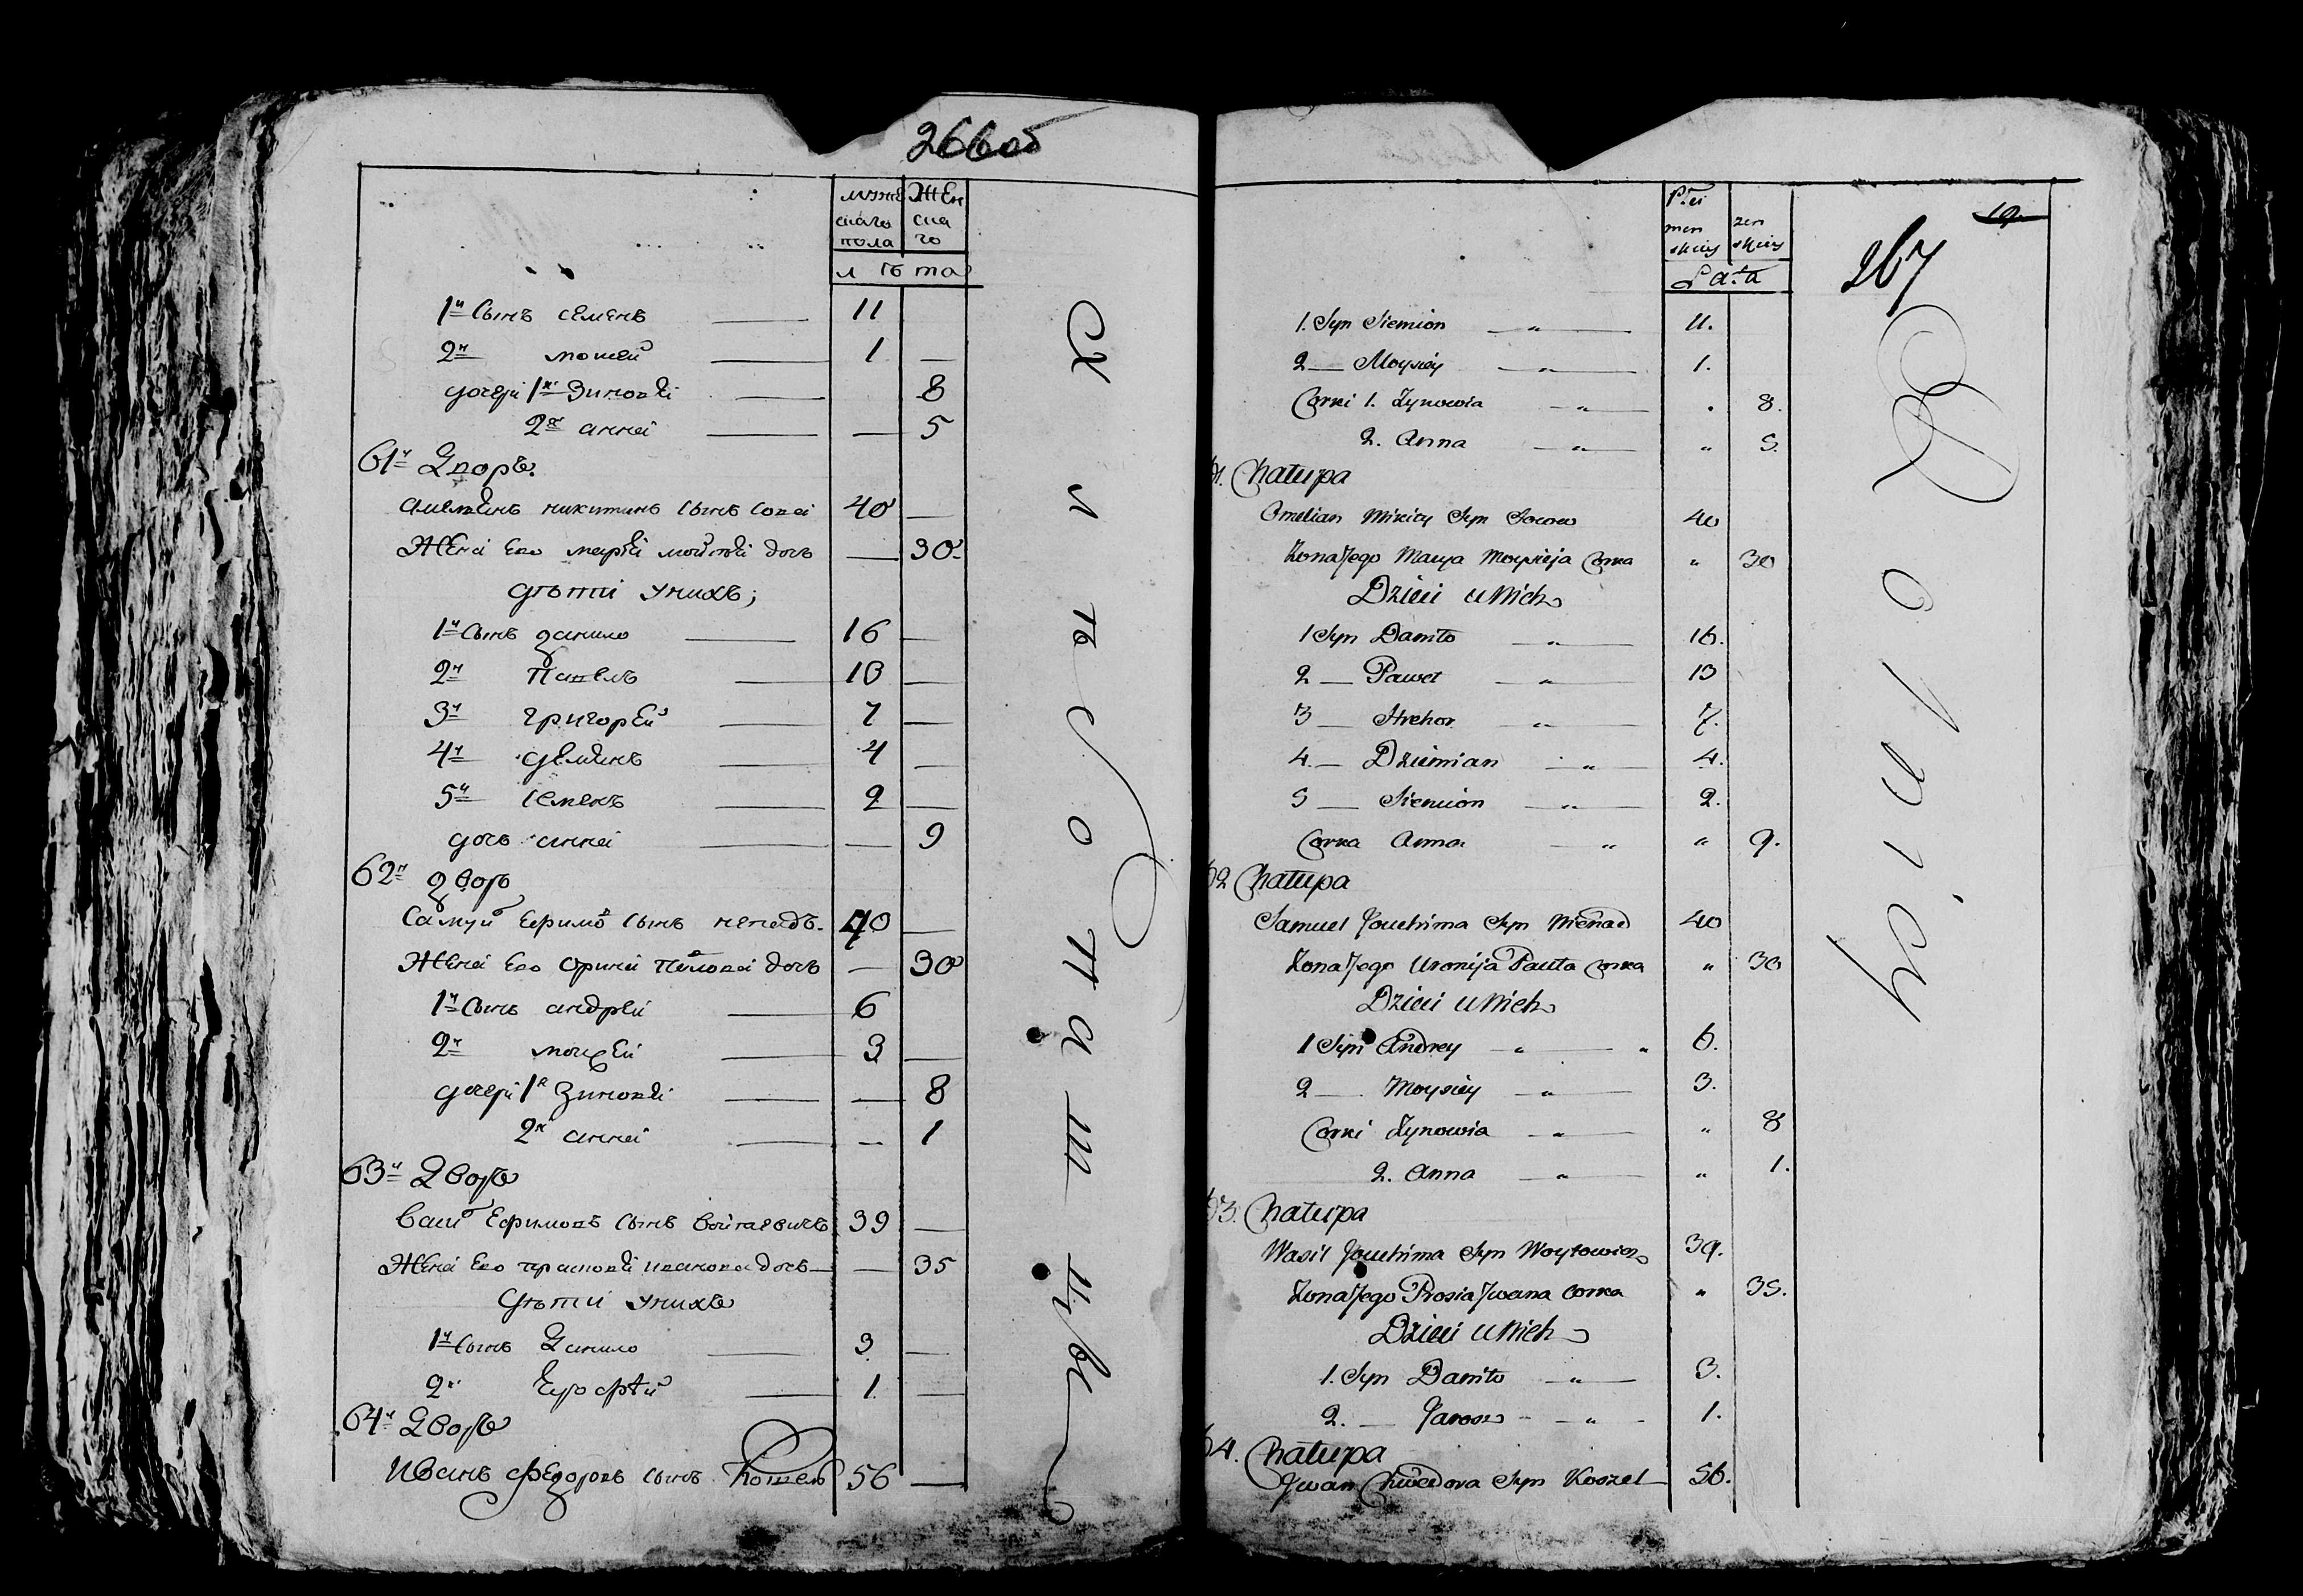 266об
мужескаго пола
Женскаго
лѣта
1й Сынъ Семенъ 11
2й мойсей 1 —
дочери 1я Зиновiя 8
2я анна — 5
61й Дворъ.
никитинъ сынъ 40 —
Жена Его марья дочь — 30
дѣти у нихъ;
1й Сынъ данило 16 —
2й Павелъ 10 —
3й григорей 7 —
4й демянъ 4 —
5й Семенъ 2 —
дочь анна — 9
62й дворъ
Самуй Ефимовъ Сынъ ненадъ. 40 —
Жена Его орина дочь — 30
1й Сынъ андрей 6
2й мойсей 3 —
дочери 1я Зиновiя — 8
2я анна — 1
63й Дворъ
Васи Ефимовъ Сынъ 39 —
Жена Его прасковя иванова дочь — 35
Дѣти у нихъ
1й Сынъ Данило 3 —
2й 1 —
64й Дворъ
Иванъ Федоровъ Сынъ Кошель 56 —
Płci
men skiey
zen skiey
Lata
19
267
1. Syn Siemion — " — 11.
2 — Moysiey — " — 1.
Corki 1. Zynowia — " — 8.
2. Anna — " — " 5.
61. Chatupa
Omelian Mikity Syn 40
Zona Jego Marya Moysieja Corka " 30
Dzieci u Nich
1 Syn Daniło — " — 16.
2 — Paweł — " — 10
3 — Hrehor — " — 7.
4. — Dziemian — " — 4.
5 — Siemion — " — 2.
Corka Anna — " " 9.
62 Chatupa
Samuel Jouchima Syn Nienad 40
Zona Jego Uronija Pauła Corka " 30
Dzieci u Nich
1 Syn Andrey — " — " 6.
2 — Moysiey — " — 3.
Corki Zynowia — " — " 8
2. Anna — " — " 1.
63. Chatupa
Wasil Jouchima Syn Woytowicz 39.
Zona Jego Prosia Jwana Corka " 35.
Dzieci u Nich
1. Syn Daniło — " — 3.
2. — Jarosz — " — 1.
64. Chatupa
Jwan Chwedora Syn Koszel 56.